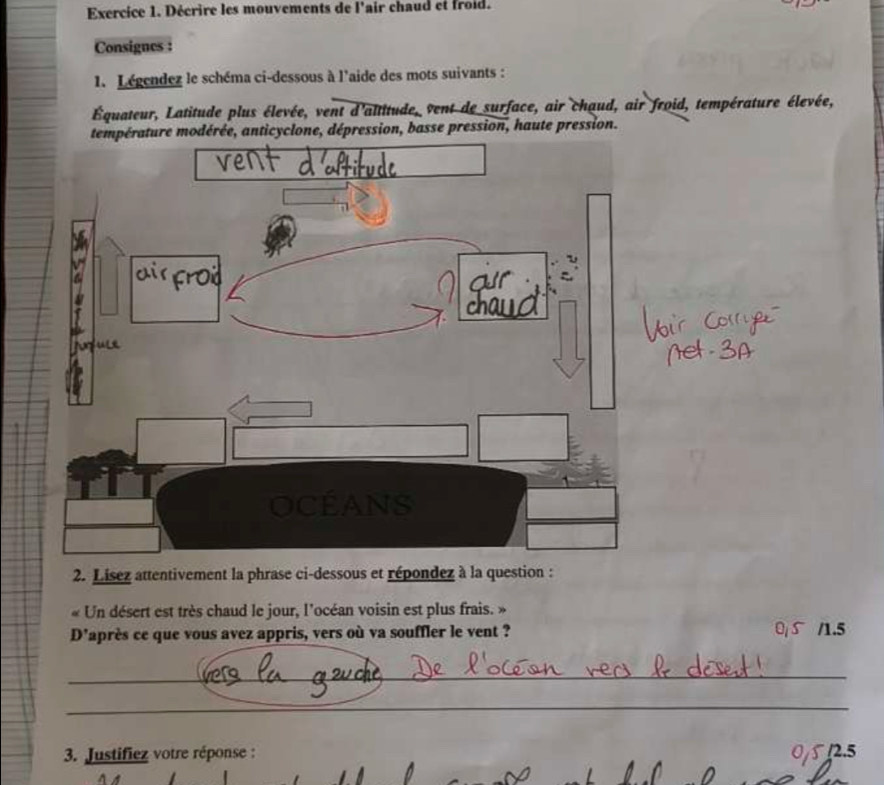 Exercice 1. Décrire les mouvements de l'air chaud et froid.
Consignes :
1. Légendez le schéma ci-dessous à l'aide des mots suivants :
Équateur, Latitude plus élevée, vent d'altitude, vent de surface, air chaud, air froid, température élevée,
température modérée, anticyclone, dépression, basse pression, haute pression.
vent d'altitude
air froid
air
chaud
?
Voir corrigé
Act - 3A
surface
OCÉANS
2. Lisez attentivement la phrase ci-dessous et répondez à la question :
« Un désert est très chaud le jour, l'océan voisin est plus frais. »
D'après ce que vous avez appris, vers où va souffler le vent ?
0,5 /1.5
vers la gauche De l'océan vers le désert !
3. Justifiez votre réponse :
0,5 /2.5